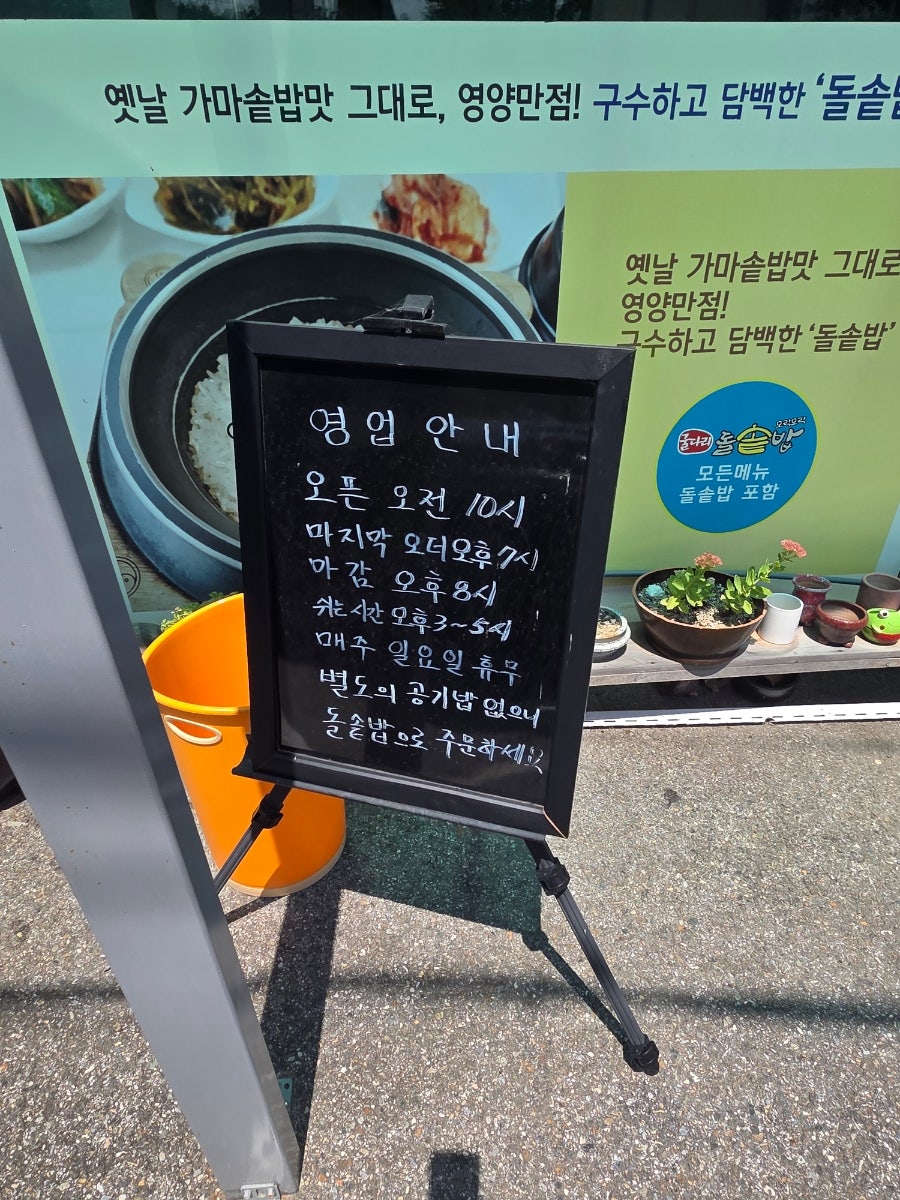 옛날 가마솥밥맛 그대로, 영양만점! 구수하고 담백한 '돌솥밥
옛날 가마솥밥맛 그대로
영양만점!
구수하고 담백한 '돌솥밥'
모락모락
굴다리 돌솥밥
모든메뉴
돌솥밥 포함
영업 안내
오픈 오전 10시
마지막 오더 오후 7시
마감 오후 8시
쉬는시간 오후 3~5시
매주 일요일 휴무
별도의 공기밥 없으니
돌솥밥으로 주문하세요